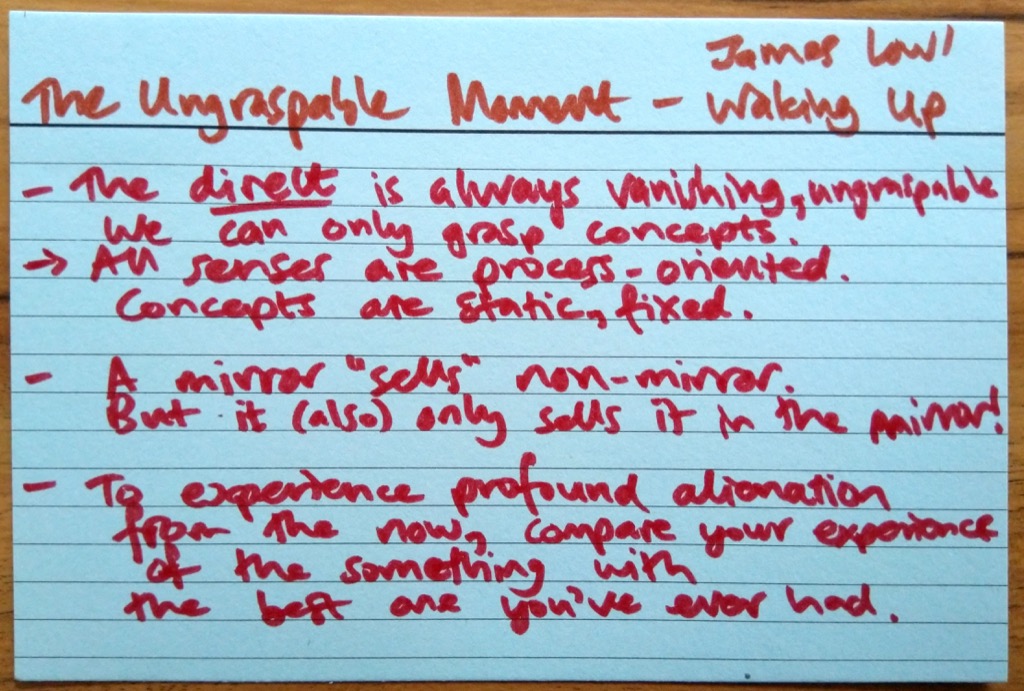 James Low/
The Ungraspable Moment - Waking Up
- The direct is always vanishing, ungraspable
We can only grasp concepts.
→ All senses are process-oriented.
Concepts are static, fixed.
- A mirror "sells" non-mirror.
But it (also) only sells it in the mirror!
- To experience profound alienation
from the now, compare your experience
of the something with
the best one you've ever had.